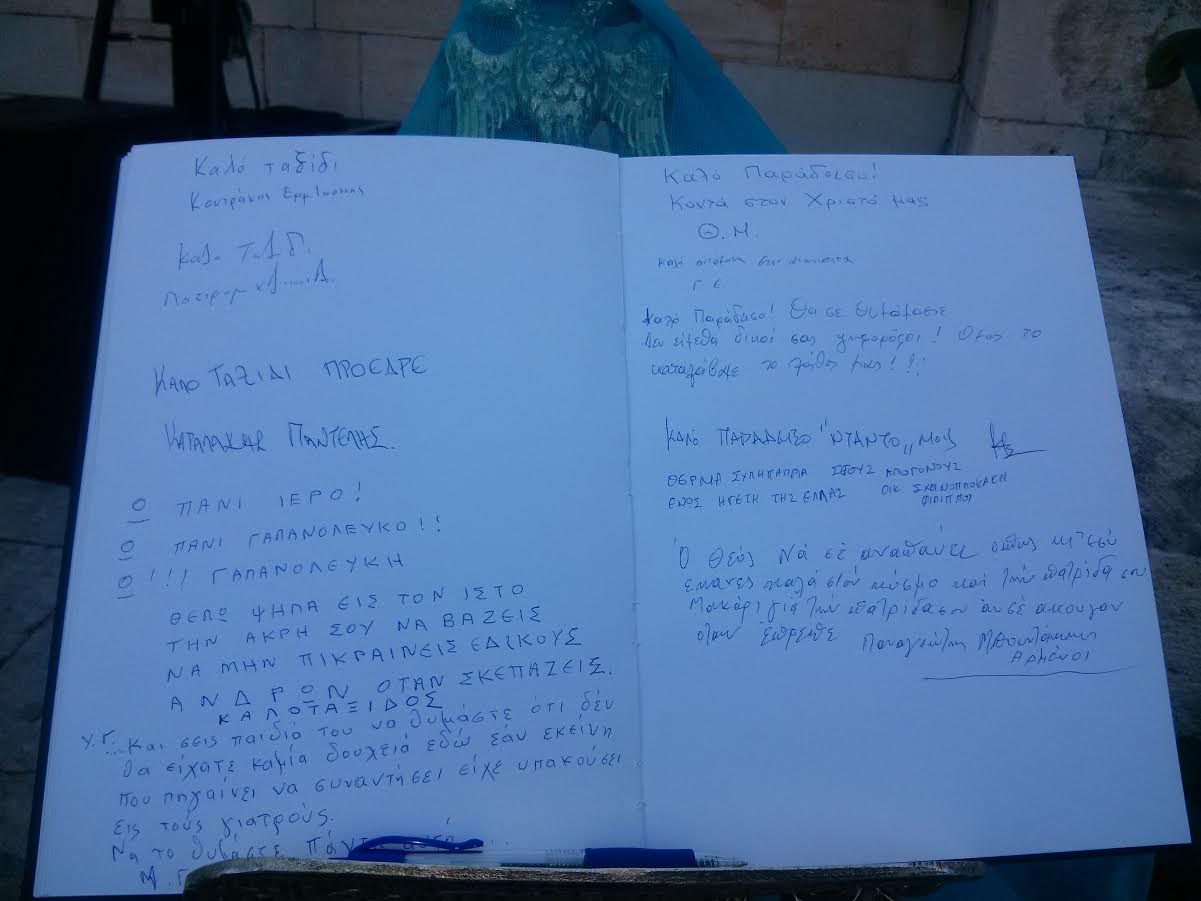 Καλό ταξίδι
Κουτράκης Εμμ
Καλο
ΚΑΛΟ ΤΑΞΙΔΙ ΠΡΟΕΔΡΕ
ΠΑΝΤΕΛΗΣ.
Ο ΠΑΝΙ ΙΕΡΟ!
Ο ΠΑΝΙ ΓΑΛΑΝΟΛΕΥΚΟ!!
Ο!!! ΓΑΛΑΝΟΛΕΥΚΗ
ΘΕΛΩ ΨΗΛΑ ΕΙΣ ΤΟΝ ΙΣΤΟ
ΤΗΝ ΑΚΡΗ ΣΟΥ ΝΑ ΒΑΖΕΙΣ
ΝΑ ΜΗΝ ΠΙΚΡΑΙΝΕΙΣ ΕΔΙΚΟΥΣ
ΑΝΔΡΩΝ ΟΤΑΝ ΣΚΕΠΑΖΕΙΣ.
ΚΑΛΟΤΑΞΙΔΟΣ
Υ.Γ. ...Και σεις παιδιά του να θυμάστε ότι δέν
θα είχατε καμία δουλειά εδώ εάν εκείνη
που πηγαίνει να συναντήσει είχε υπακούσει
εις τους γιατρούς.
Να το θυμάστε πάντα αυτό...
Μ. Γ
Καλό Παράδεισο!
Κοντά στον Χριστό μας
Θ. Μ.
Καλή αντάμωση στην
Γ Ε.
Καλό Παράδεισο! Θα σε θυμόμαστε
Δεν είμεθα δικοί σας ψηφοφόροι! Όμως το
καταλάβαμε το λάθος μας!!!
ΚΑΛΟ ΠΑΡΑΔΕΙΣΟ "ΝΤΑΝΤΟ" ΜΑΣ
ΘΕΡΜΑ ΣΥΛΗΠΗΤΗΡΙΑ ΣΤΟΥΣ ΑΠΟΓΟΝΟΥΣ
ΕΝΟΣ ΗΓΕΤΗ ΤΗΣ ΕΛΛΑΣ ΟΙΚ ΣΧΟΙΝΟΠΛΟΚΑΚΗ
ΦΙΛΙΠΠΟΥ
Ο Θεός Νά σέ αναπαύει οπως κι εσύ
έκανες καλά στόν κόσμο καί τήν πατρίδα σου
Μακάρι γιά τήν πατρίδα σου άν σέ ακουγαν
όταν έπρεπε Παναγιώτης
Αρμένοι